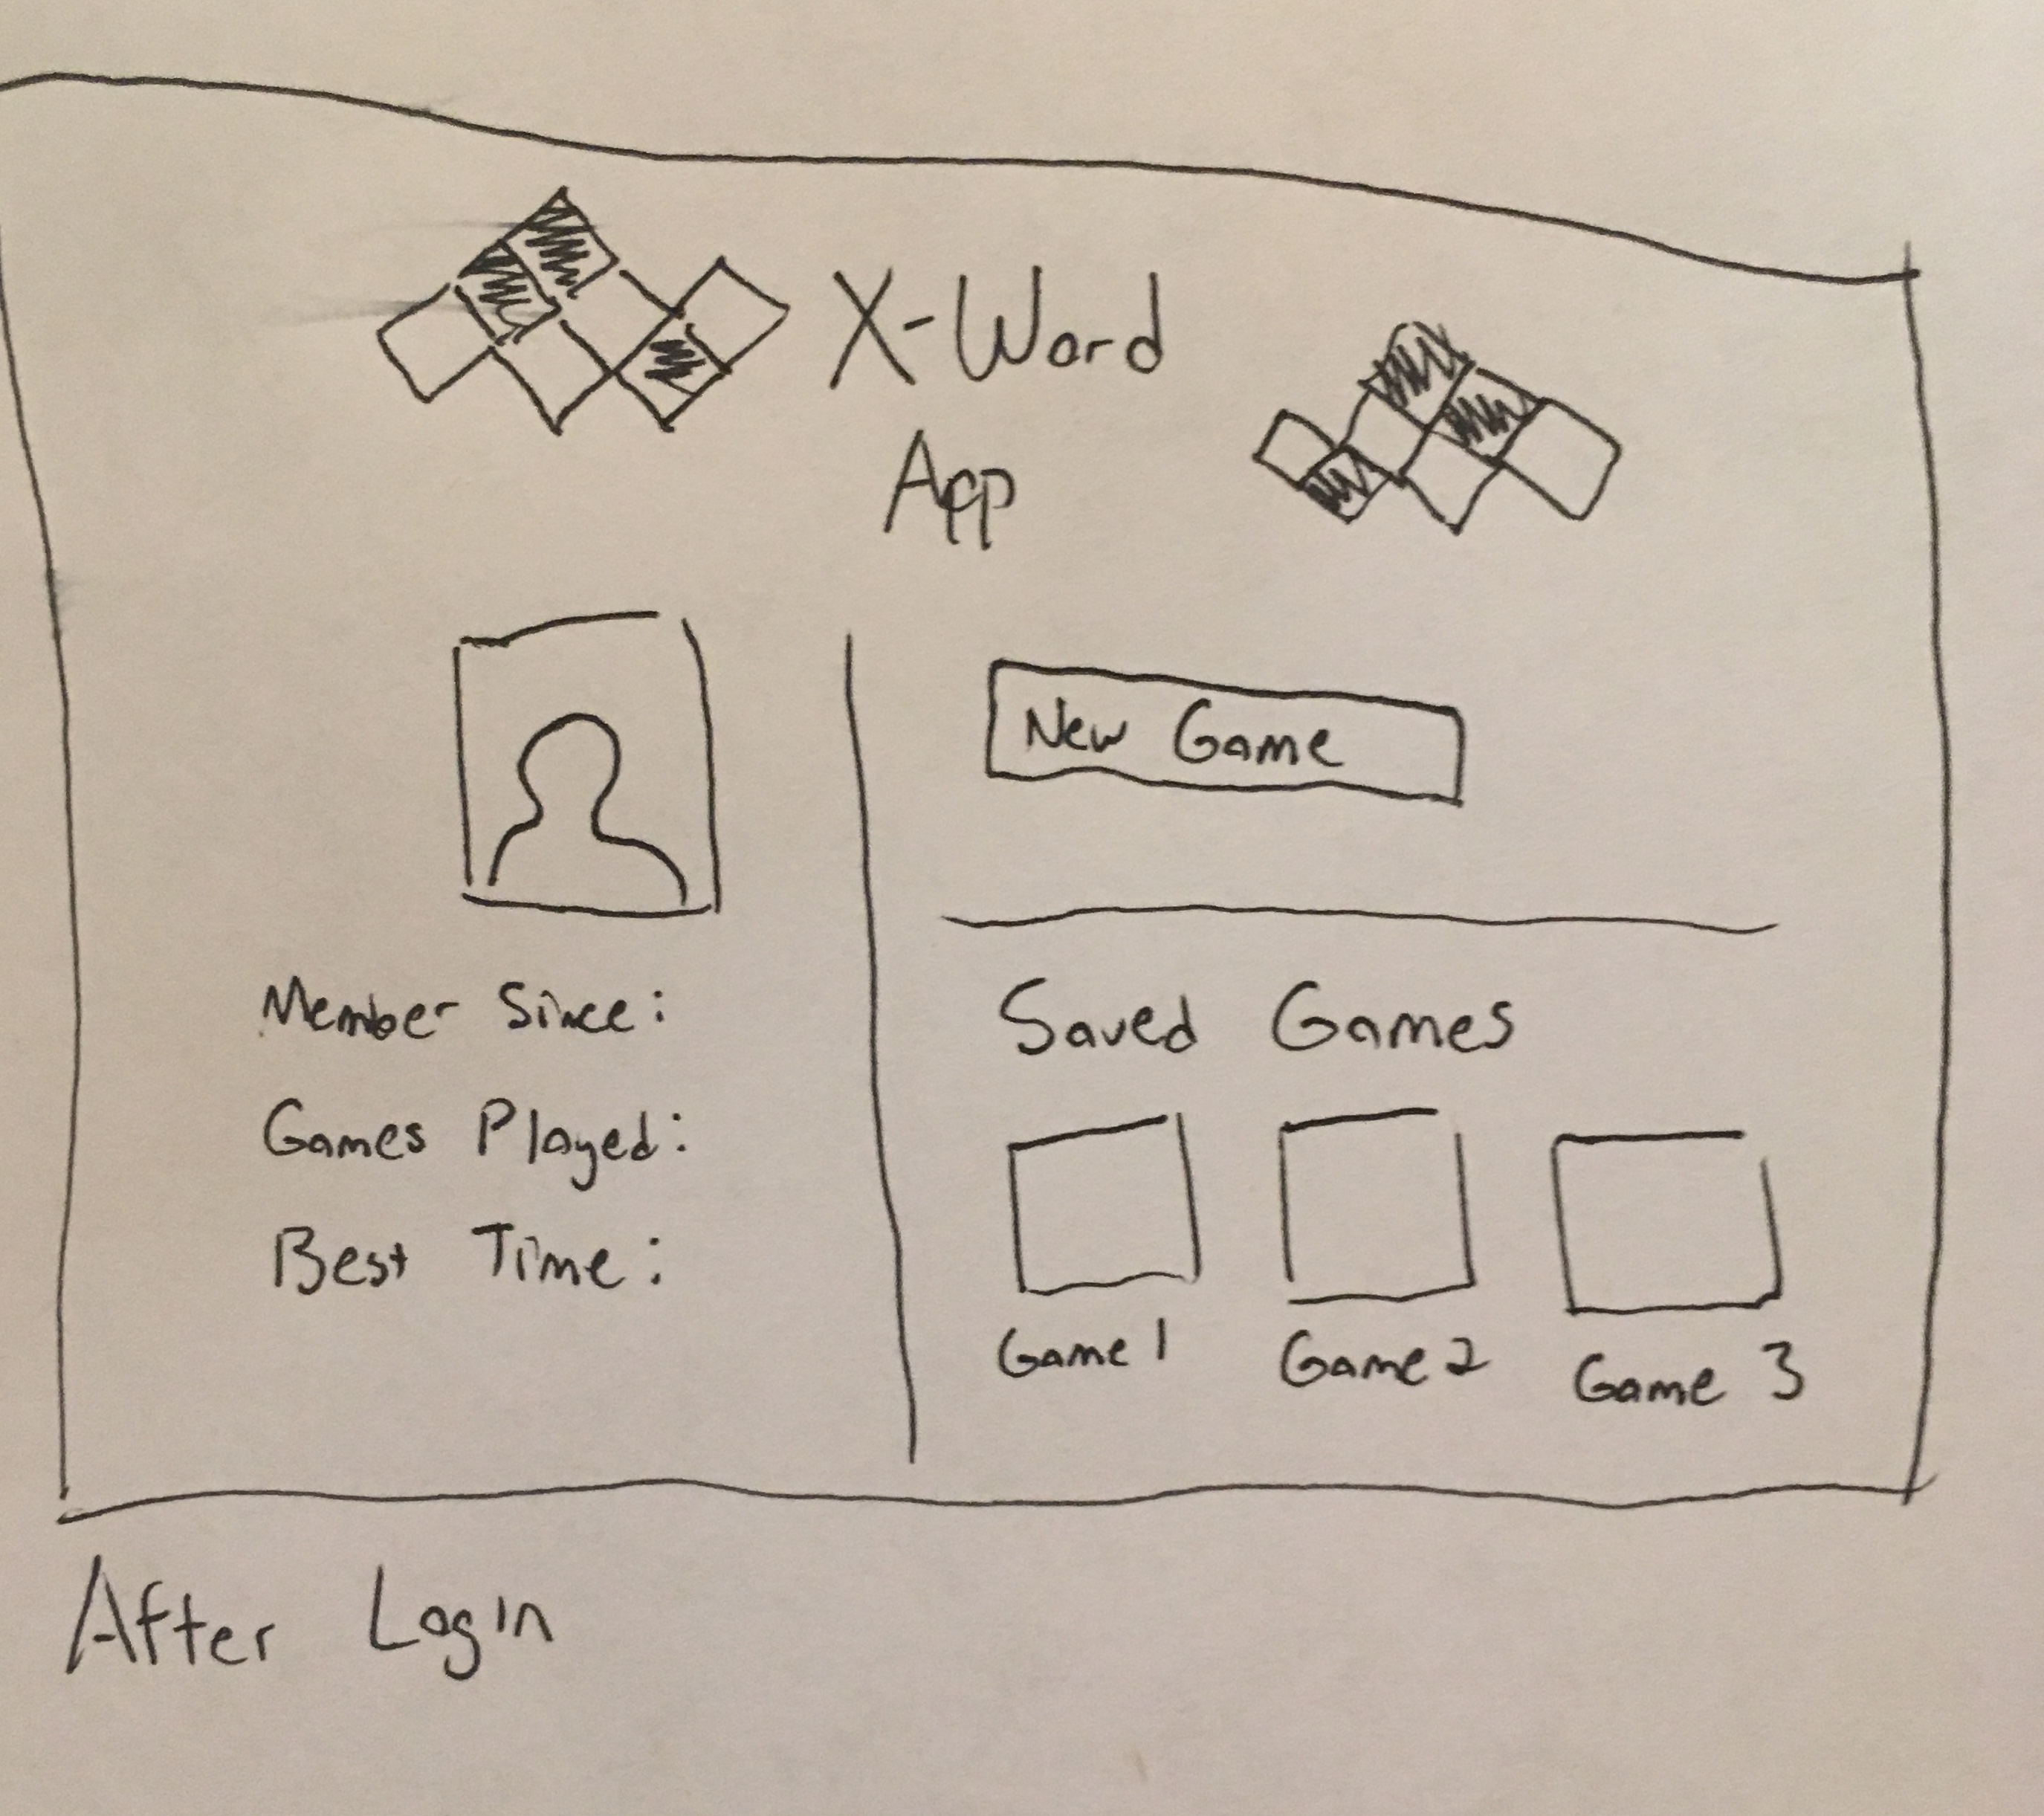 X-Word
App
New Game
Member Since:
Games Played:
Best Time:
Saved Games
Game 1
Game 2
Game 3
After Login